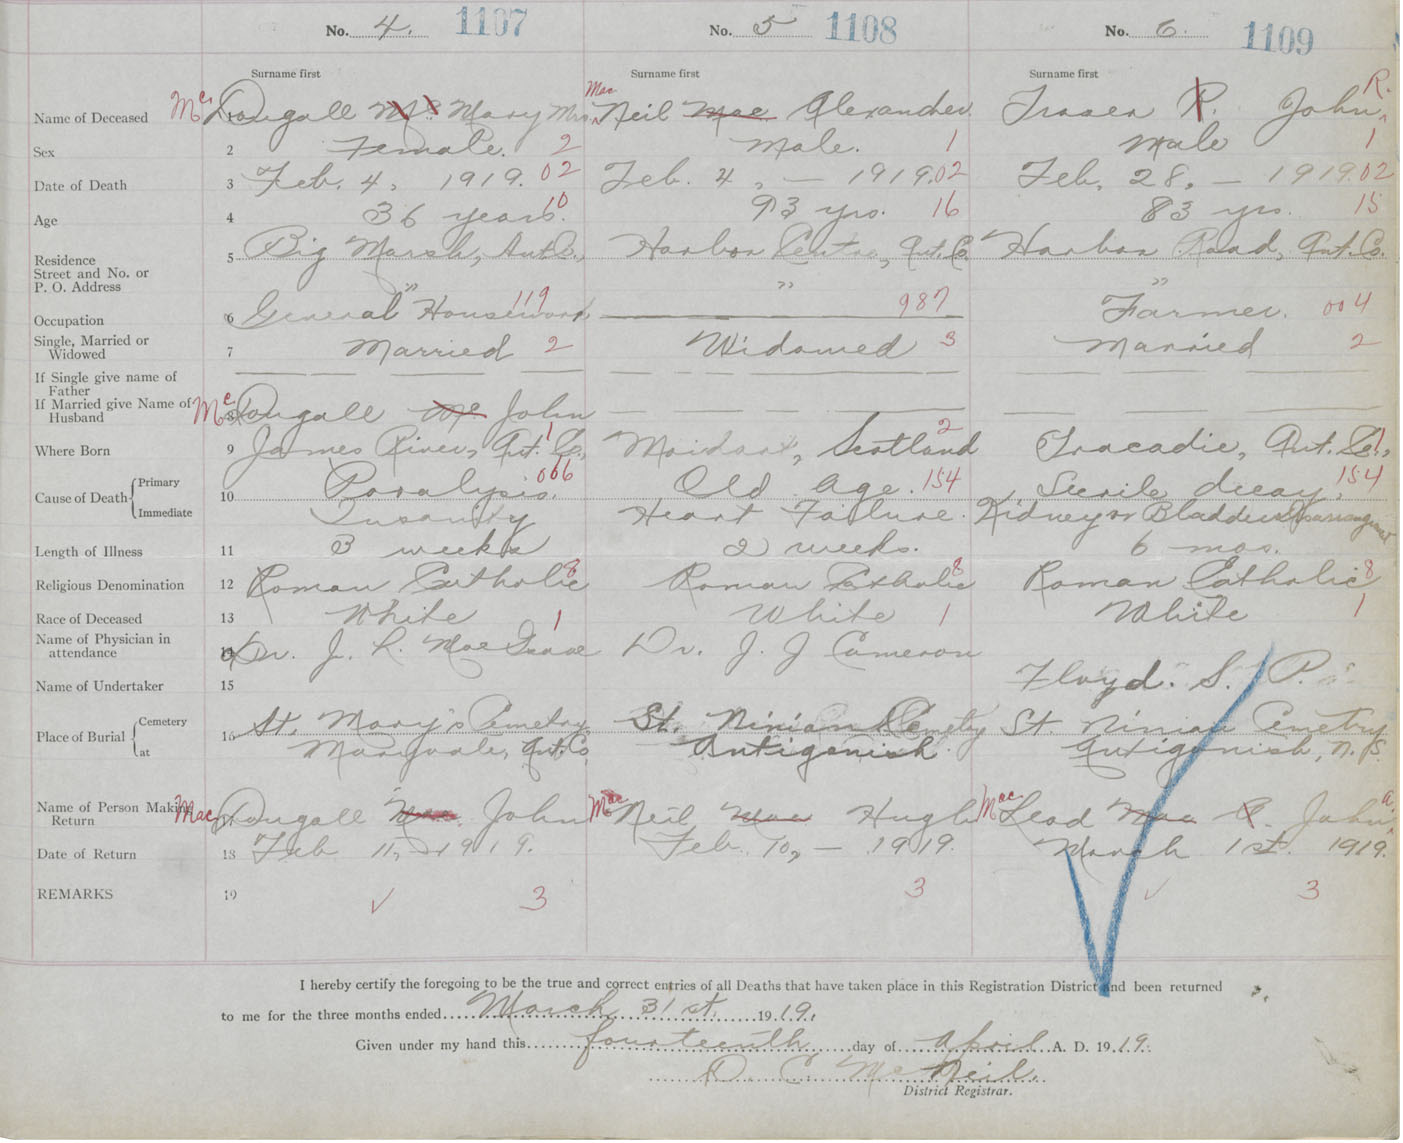 No. 4. 1107 No. 5 1108 No. 6. 1109
Surname first Surname first Surname first
Name of Deceased 1 Mc Dougall Mc Mary Mrs Mac Neil Mac Alexander. Fraser R. John R.
Sex 2 Female. 2 Male. 1 Male 1
Date of Death 3 Feb. 4, 1919. 02 Feb. 4, — 1919. 02 Feb. 28, — 1919. 02
Age 4 36 years. 10 93 yrs. 16 83 yrs. 15
Residence 5 Big Marsh, Ant. Co., Harbor Centre, Ant. Co. Harbor Road, Ant. Co.
Street and No. or
P. O. Address " " "
Occupation 6 General Housework 119 987 Farmer. 004
Single, Married or
Widowed 7 Married 2 Widowed 3 Married 2
If Single give name of
Father
If Married give Name of
Husband 8 Mc Dougall Mc John
Where Born 9 James River, Ant. Co., 1 Moidart, Scotland 2 Tracadie, Ant. Co., 1
Cause of Death Primary 10 Paralysis. 066 Old age. 154 Senile decay, 154
Immediate Insanity Heart Failure. Kidney or Bladder
Length of Illness 11 3 weeks 2 weeks. 6 mos.
Religious Denomination 12 Roman Catholic 8 Roman Catholic 8 Roman Catholic 8
Race of Deceased 13 White 1 White 1 White 1
Name of Physician in
attendance 14 Dr. J. L. Mac Isaac Dr. J. J Cameron
Name of Undertaker 15 Floyd. S. P.
Place of Burial Cemetery 16 St. Mary's Cemetry St. Ninian Cemetry St. Ninian Cemetry
at Maryvale, Ant. Co. Antigonish. Antigonish, N. S.
Name of Person Making
Return 17 Mac Dougall Mac John Mac Neil Mac Hugh Mac Leod Mac A. John A.
Date of Return 18 Feb 11, — 1919. Feb. 10, — 1919. March 1st. 1919.
REMARKS 19 ✓ 3 3 ✓ 3
I hereby certify the foregoing to be the true and correct entries of all Deaths that have taken place in this Registration District and been returned
to me for the three months ended March 31st. 1919.
Given under my hand this fourteenth day of April A. D. 1919.
D. C. McNeil.
District Registrar.